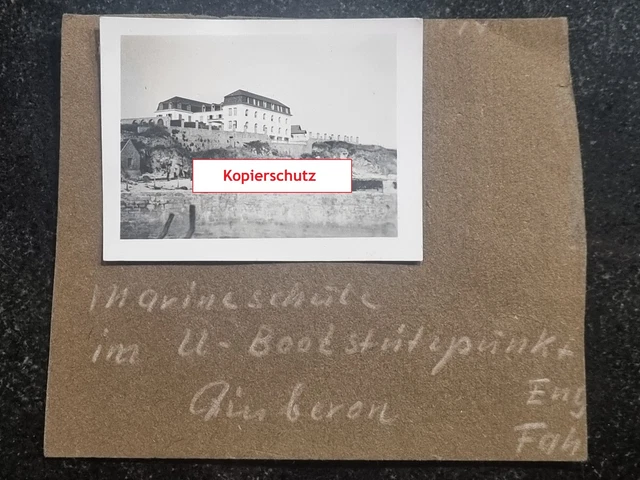 Kopierschutz
Marineschule
im U-Bootstützpunkt
Quiberon
Eng
Fah